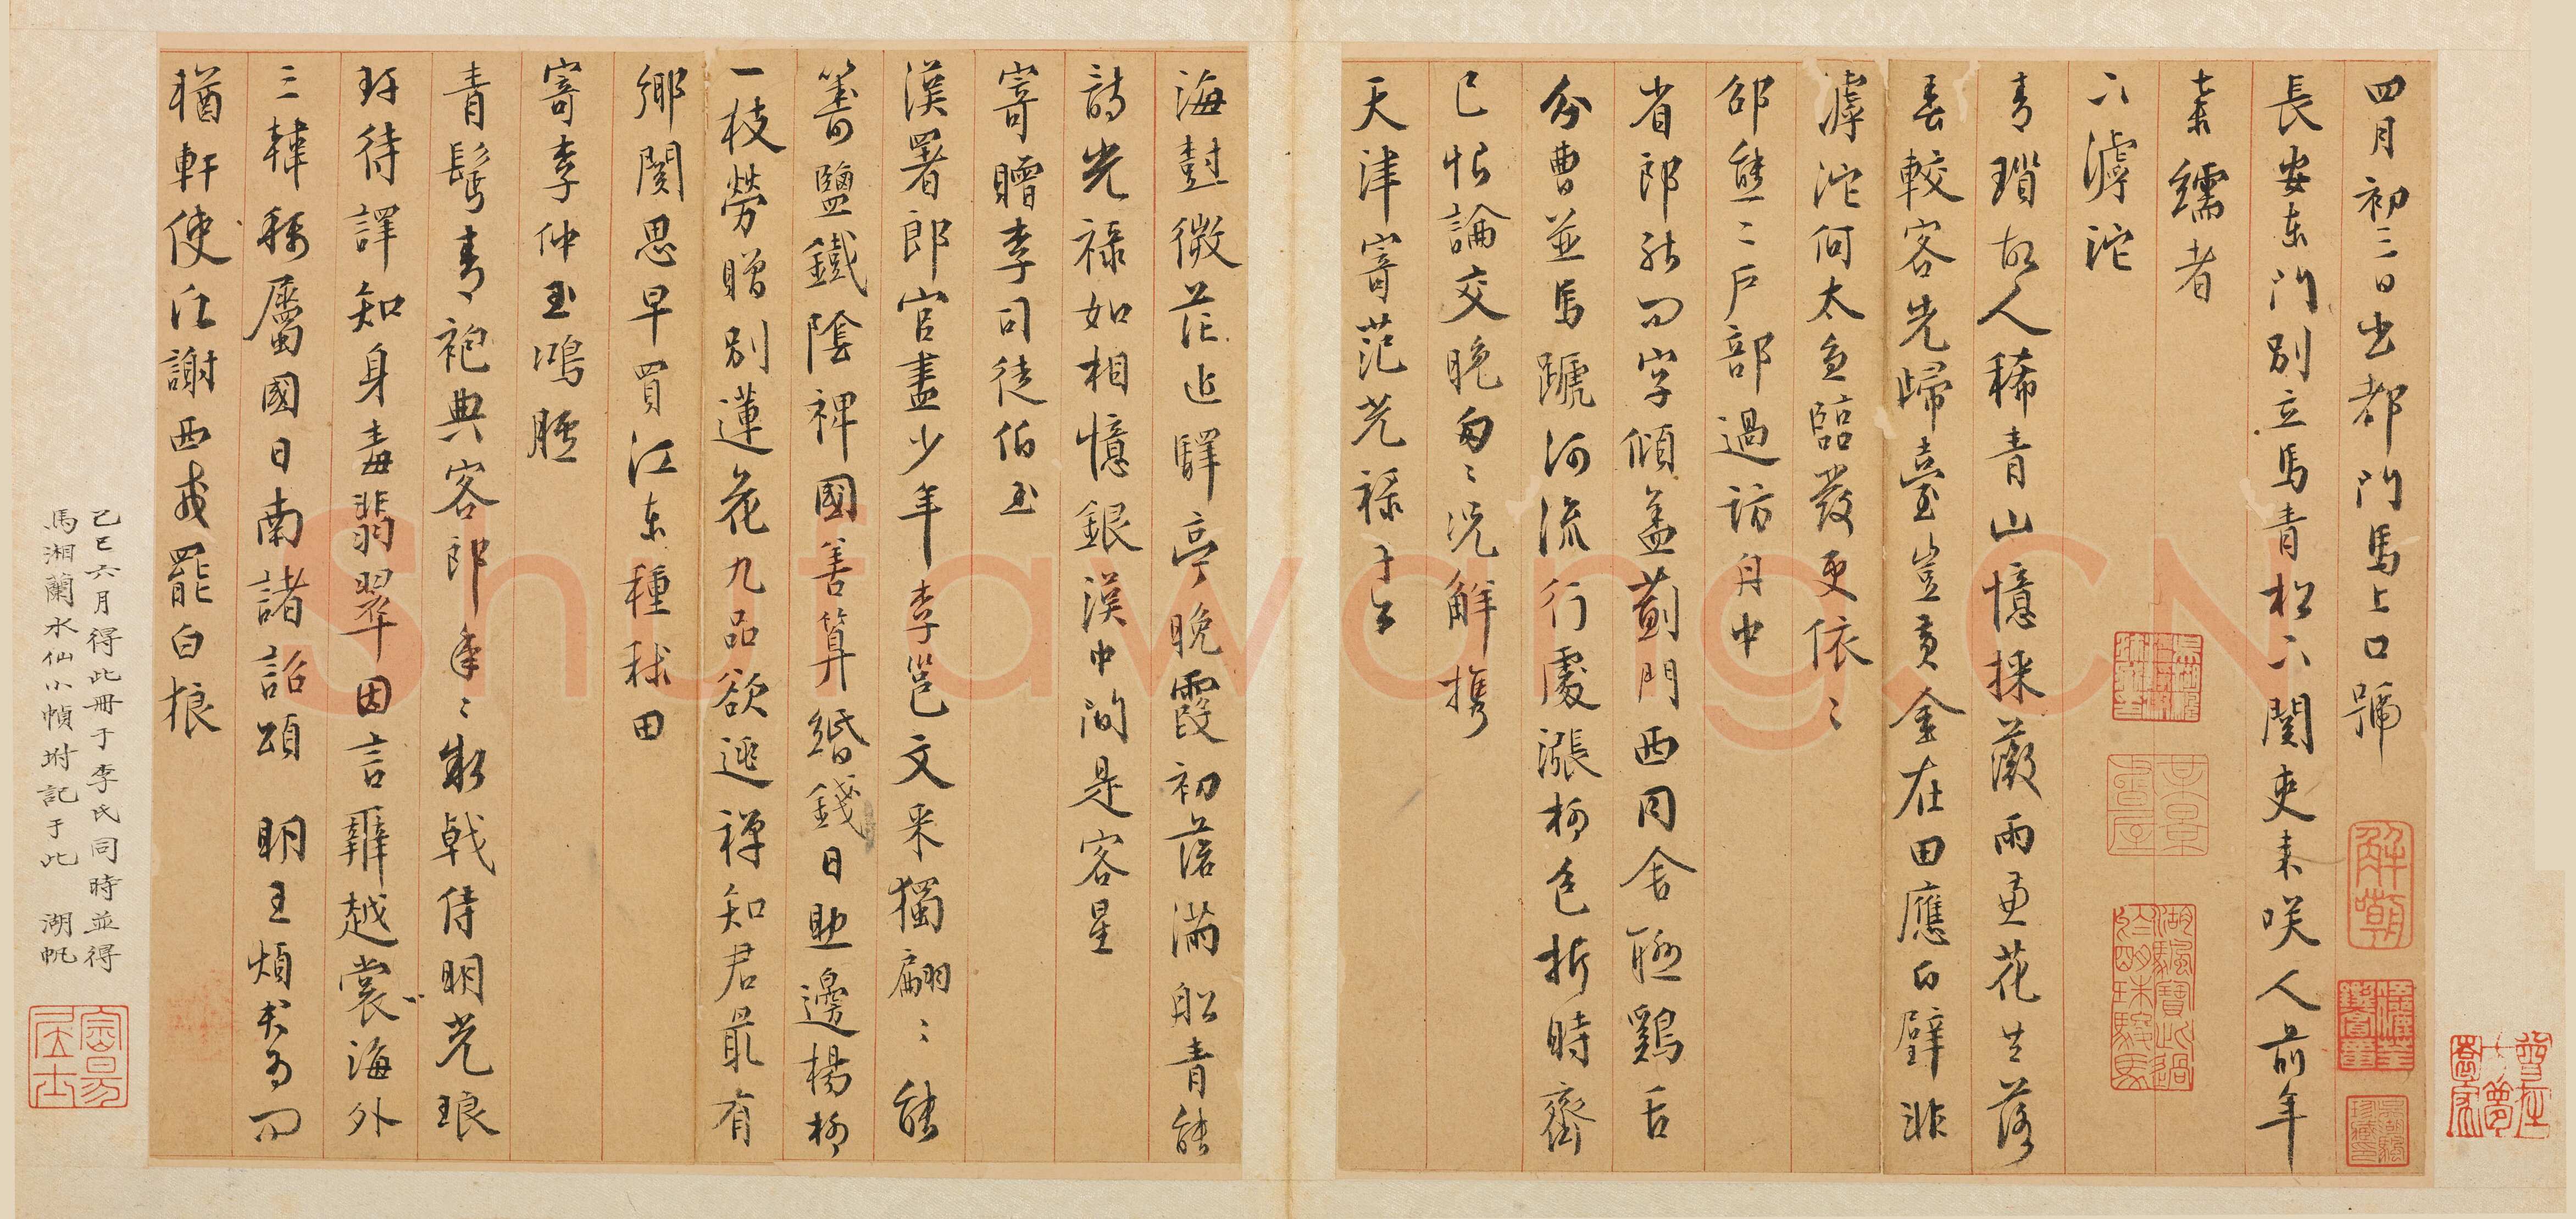 四月初三日出都門馬上口號
長安東門別立馬青松下關吏來咲人前年
棄繻者
下滹沱
青瑣故人稀青山憶採薇雨兼花共落
春較客先歸臺豈黃金在田應白璧非
滹沱何太急臨發更依〻
邵熊二戶部過訪舟中
省郎能問字傾蓋薊門西同舍聽鷄舌
分曹並馬蹏河流行處漲柳色折時齊
已恨論交晚匆〻況解攜
天津寄范光祿子公
海封微茫近驛亭晚霞初落滿船青能
詩光祿如相憶銀漢中間是客星
寄贈李司徒伯玉
漢署郎官盡少年李邕文采獨翩〻能
籌鹽鐵陰裨國善算緡錢日助邊楊柳
一枝勞贈別蓮花九品欲逃禪知君最有
鄉關思早買江東種秫田
寄李仲玉鴻臚
青髩青袍典客郎年〻執戟侍明光琅
玕待譯知身毒翡翠因言辨越裳海外
三韓稱屬國日南諸詔頌 明王煩君為問
猶軒使江謝西戎罷白狼
己巳六月得此冊于李氏同時並得
馬湘蘭水仙小幀坿記于此 湖帆
解嘲
Shufawang.CN